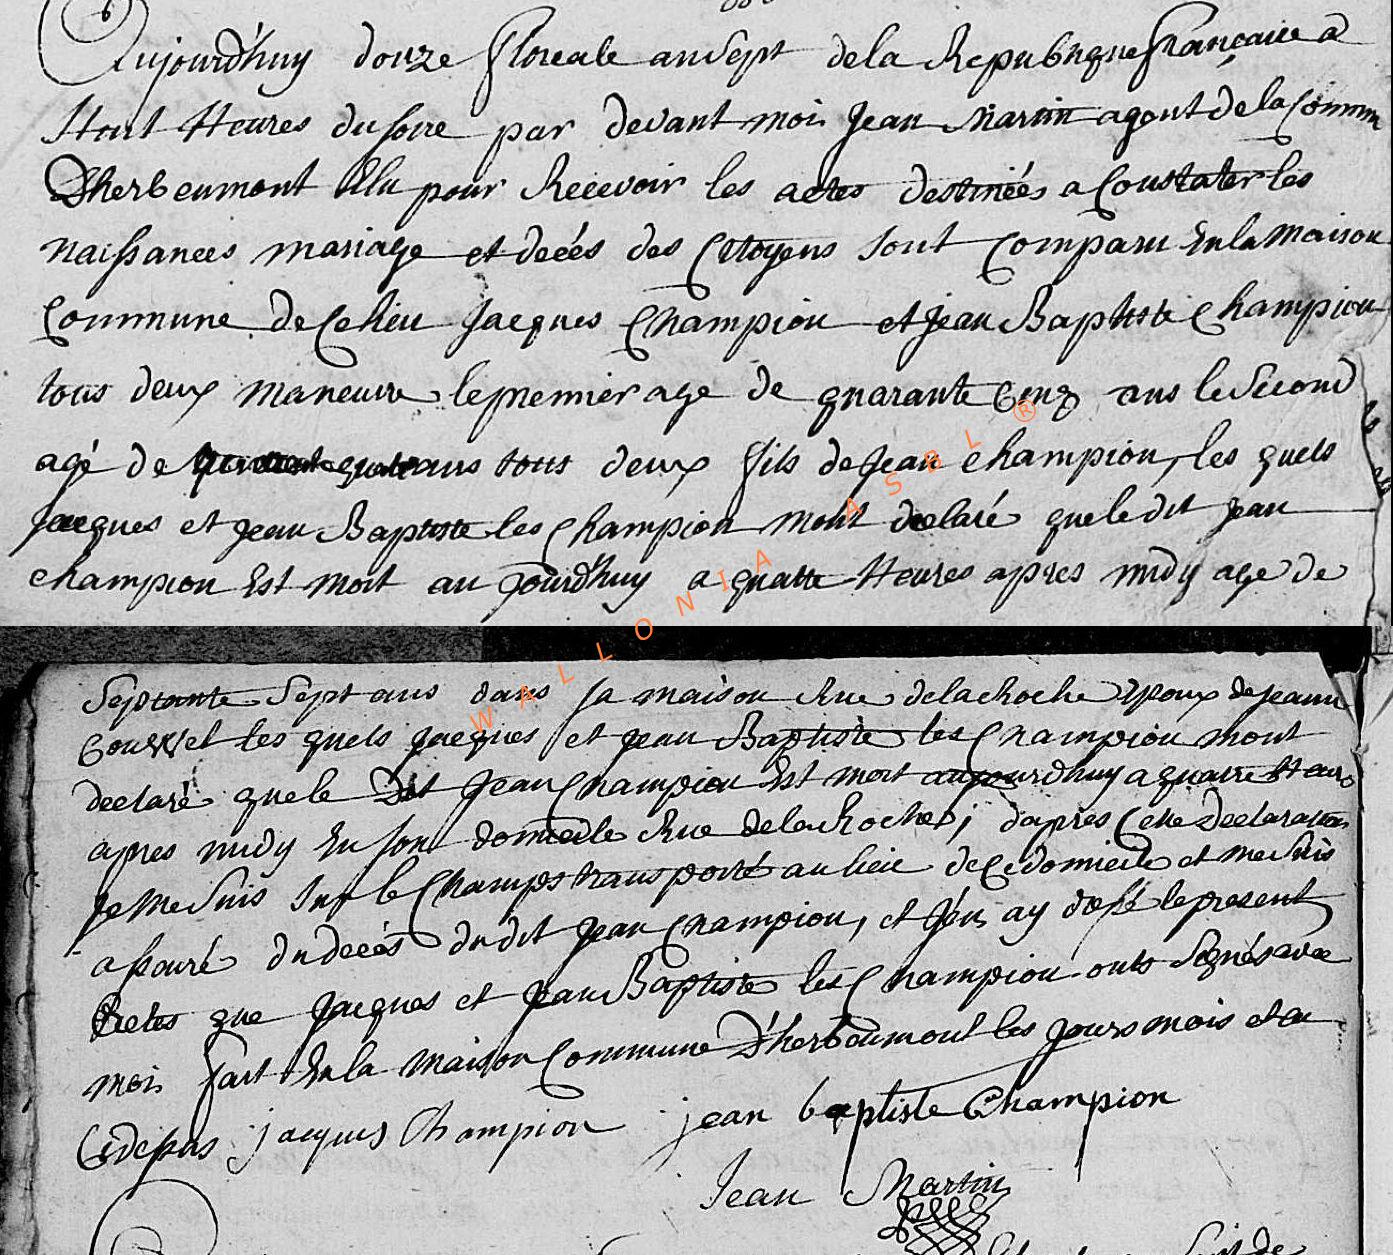 Aujourd'huy douze floreale an Sept de la Republique française a
Huit Heures du soire par devant moi Jean Martin agent de la Comm
D'herbeumont Elu pour Recevoir les actes destinées a Constater les
naissances mariage et decés des Citoyens sont Comparu En la Maison
Commune de Ce lieu Jacques Champion et Jean Baptiste Champion
tous deux maneuvre le premier age de quarante Cinq ans le Second
agé de ans tous deux fils de Jean Champion, les quels
Jacques et Jean Baptiste les Champion mont declaré que le dit Jean
champion Est mort aujourd'huy a quatre Heures apres midy age de
Septante Sept ans dans sa maison Rue de la Roche Epoux de Jeanne
les quels Jacques et Jean Baptiste les Champion mont
declaré que le Dit Jean Champion Est mort aujourdhuy a quatre Heures
apres midy En son domicile Rue de la Roche; d'apres Cette Declaration
Je me suis sur le Champs transporté au lieu de Ce domicile et me suis
assuré du decés du dit Jean Champion, et J'en ay dressé le present
que Jacques et Jean Baptiste les Champion onts Signés avec
moi fait En la Maison Commune D'herbeumont les Jours mois et an
Cidessus jacques Champion jean baptiste Champion
Jean Martin
WALLONIA ASBL ®